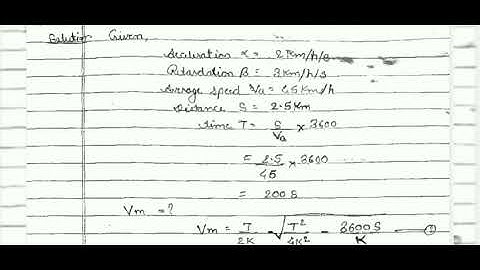 Solution Given,
Accelaration α = 2 Km/h/s
Retardation β = 3 Km/h/s
Average speed Va = 45 Km/h
Distance S = 2.5 Km
Time T = S/Va × 3600
= 2.5/45 × 3600
= 200 S
Vm = ?
Vm = T/2K - √(T²/4K² - 3600S/K) — ①